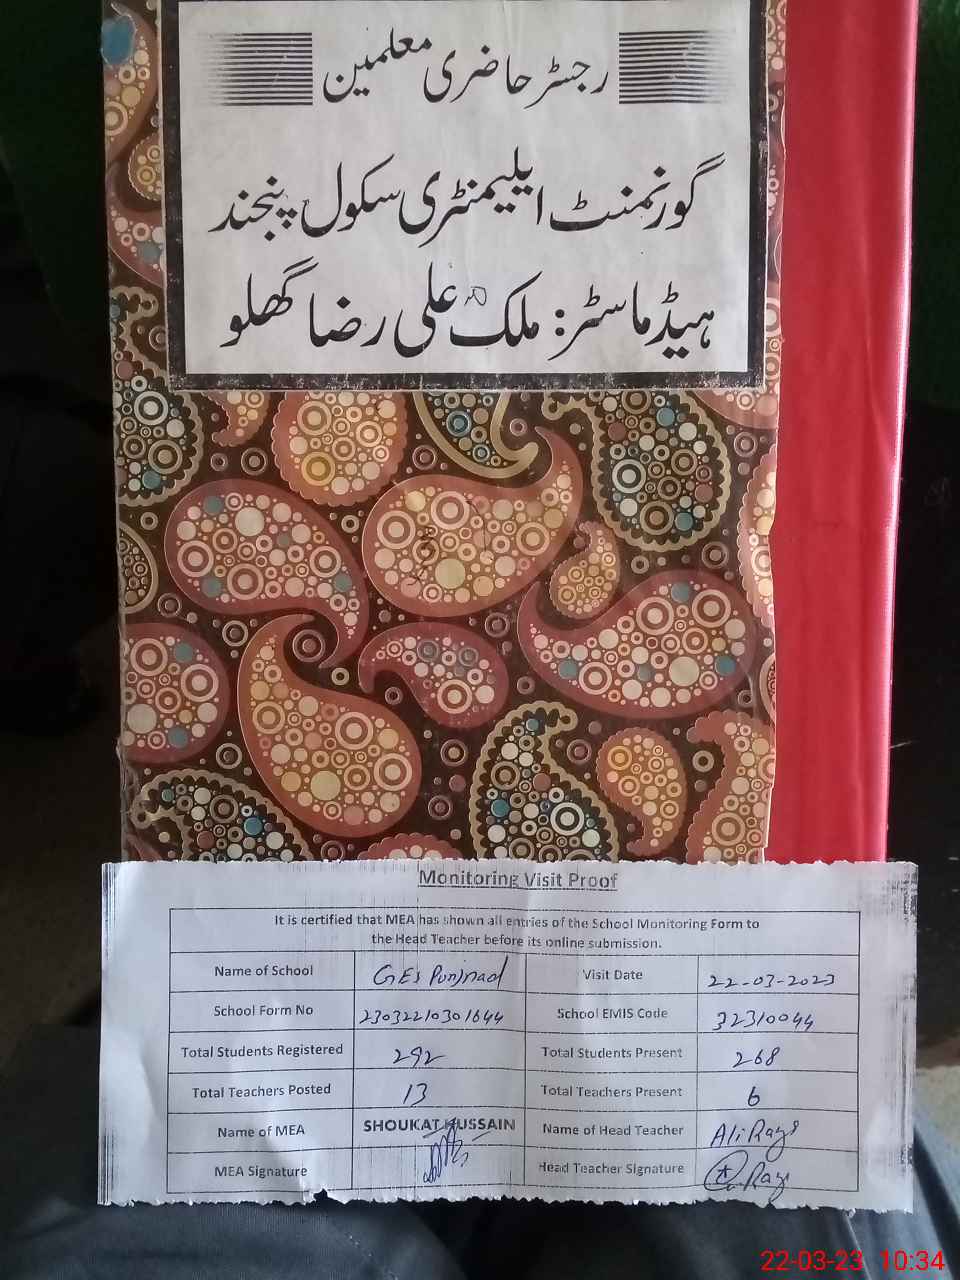 رجسٹر حاضری معلمین
گورنمنٹ ایلیمنٹری سکول پنجند
ہیڈ ماسٹر: ملک علی رضا گھلو
Monitoring Visit Proof
It is certified that MEA has shown all entries of the School Monitoring Form to
the Head Teacher before its online submission.
Name of School GES Punjnad Visit Date 22-03-2023
School Form No 23032210301644 School EMIS Code 32310044
Total Students Registered 292 Total Students Present 268
Total Teachers Posted 13 Total Teachers Present 6
Name of MEA SHOUKAT HUSSAIN Name of Head Teacher Ali Raza
MEA Signature Head Teacher Signature
22-03-23 10:34